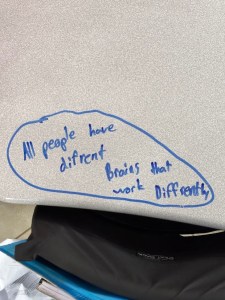 All people have
difrent
Brains that
work Diffrently